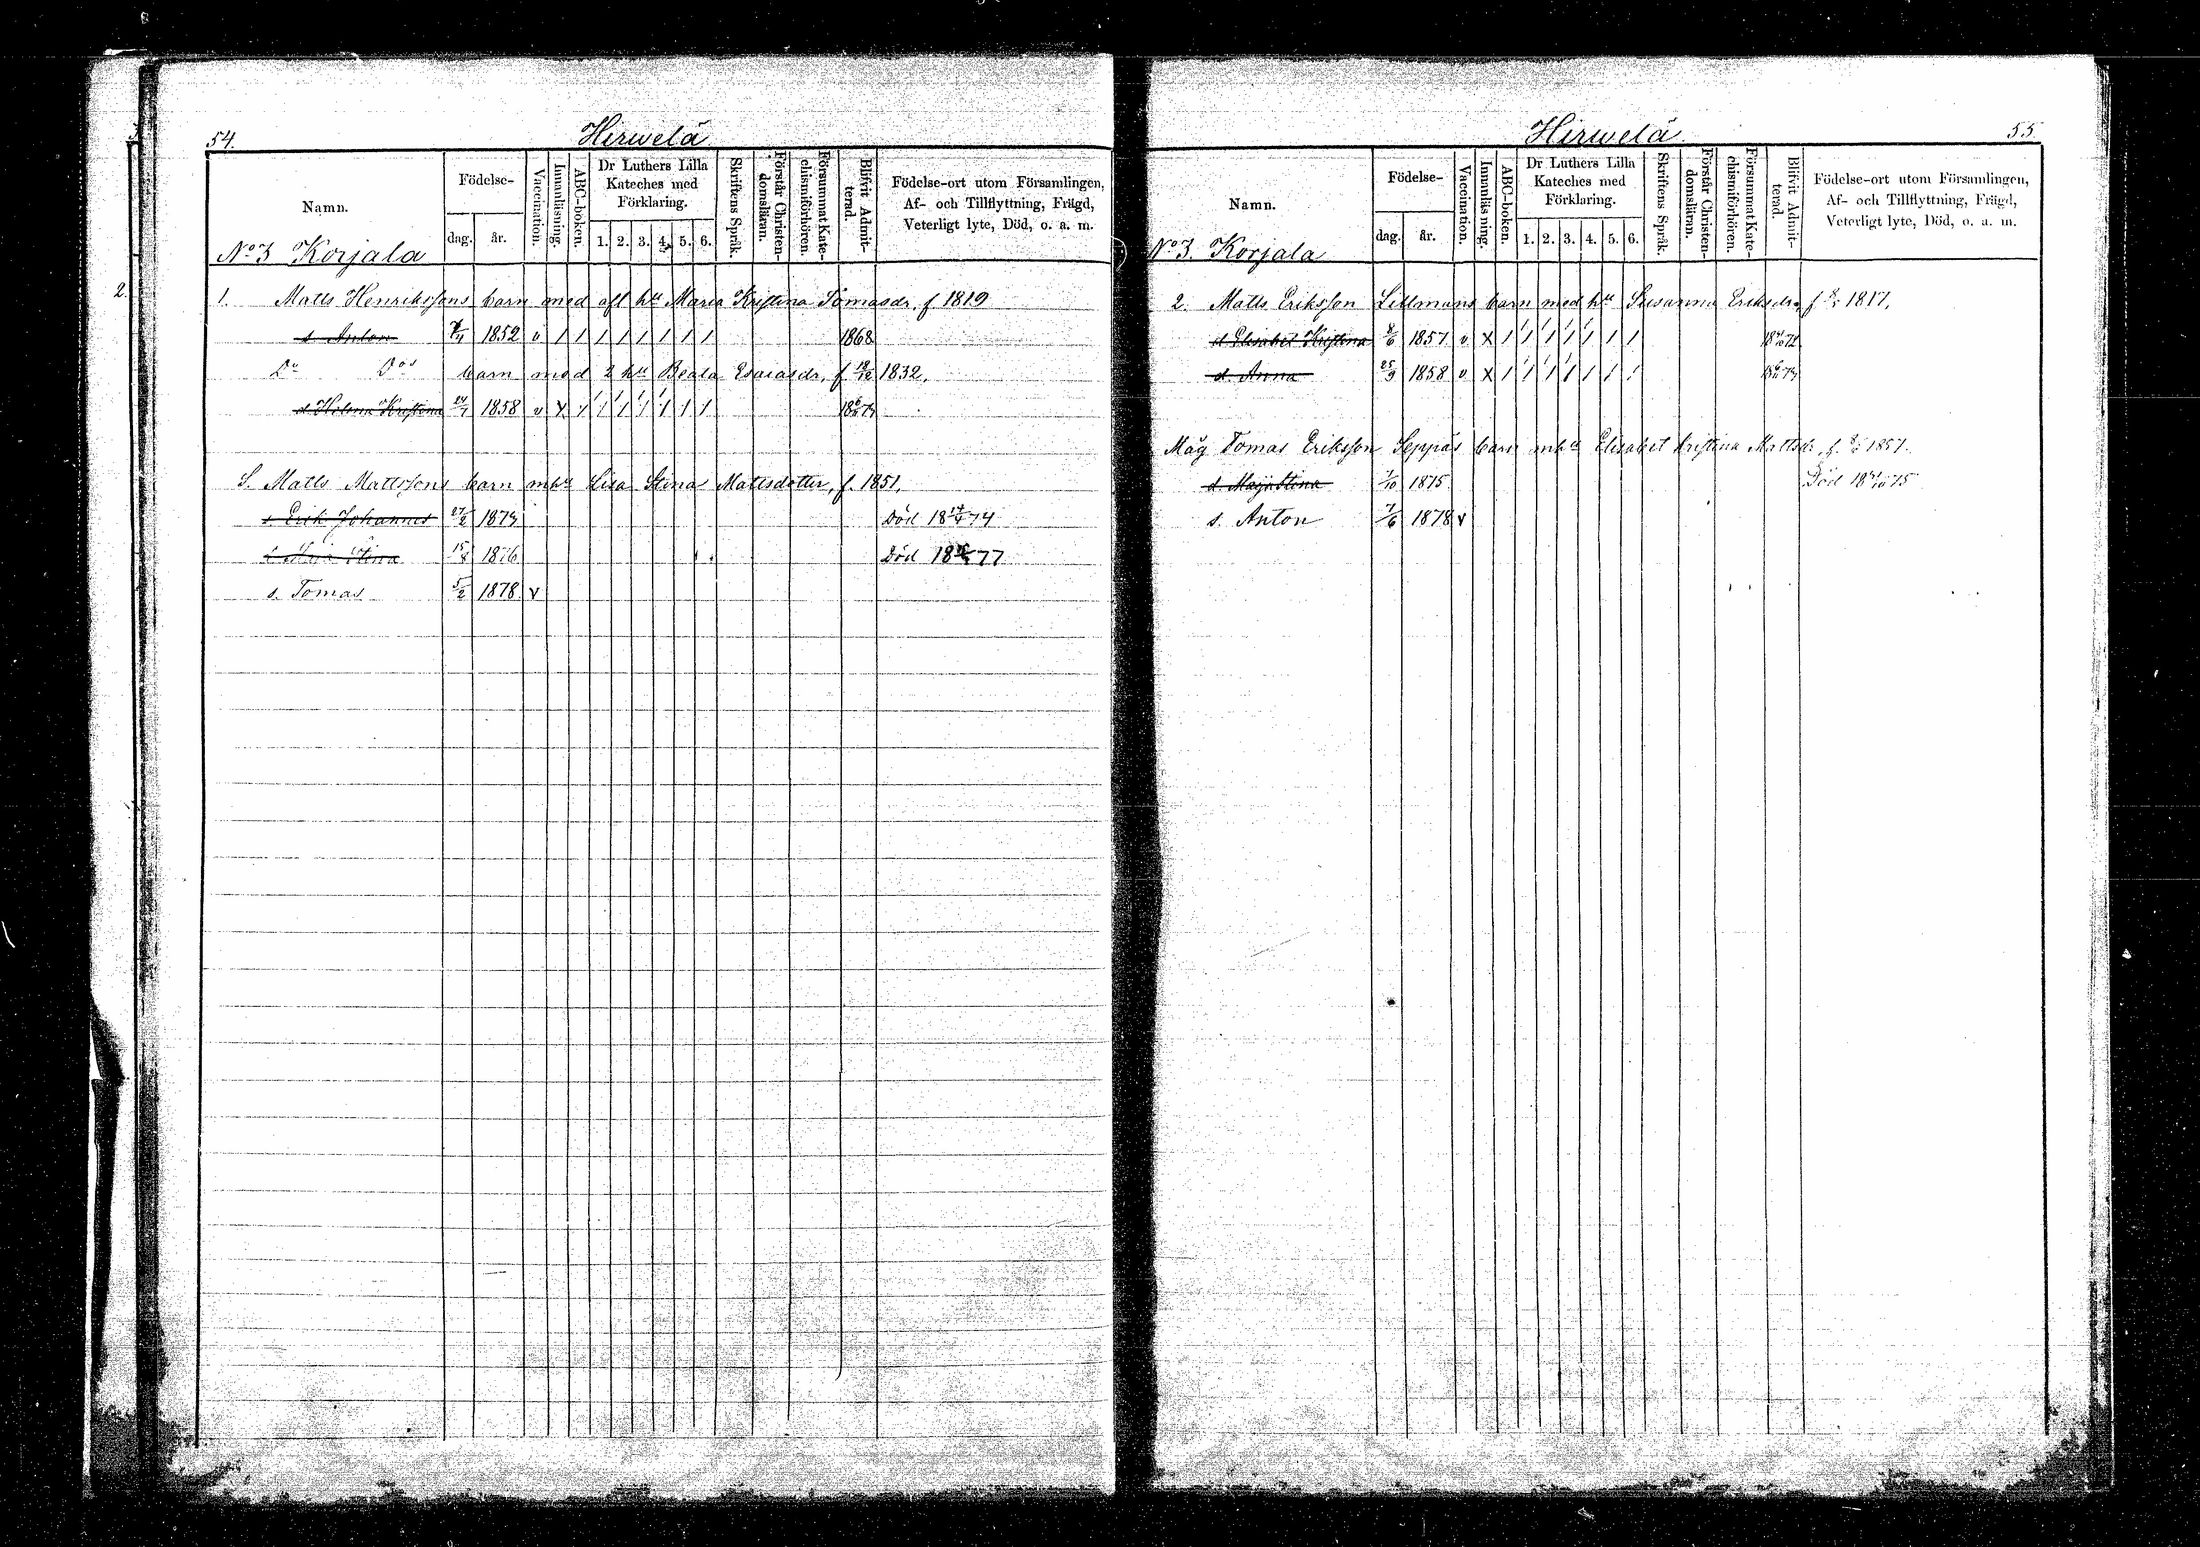 54.
Hirwelä
Namn.
Födelse-
dag.
år.
Vaccination.
Innanläsning.
ABC-boken.
Dr Luthers Lilla
Kateches med
Förklaring.
1. 2. 3. 4. 5. 6.
Skriftens Språk.
Förstår Christen-
domsläran.
Försummat Kate-
chismiförhören.
Blifvit Admit-
terad.
Födelse-ort utom Församlingen,
Af- och Tillflyttning, Frägd,
Veterligt lyte, Död, o. a. m.
No 3 Korjala
2.
1. Matts Henrikssons barn med afl hu Maria Kristina Tomasdr, f 1819
s Anton 7/4 1852 v / / / / / / / / 1868
Do Dos barn med 2 hu Beata Esaiasdr, f 12/12 1832.
d Helena Kristina 24/7 1858 v X / / / / / / /
S. Matts Mattssons barn mhu Lisa Stina Mattsdotter, f. 1851.
s Erik Johannes 27/2 1873 Död 18 14/4 74
Stina 15/8 1876 Död 18 77
s. Tomas 5/2 1878 v
Hirwelä
55.
Namn.
Födelse-
dag.
år.
Vaccination.
Innanläsning.
ABC-boken.
Dr Luthers Lilla
Kateches med
Förklaring.
1. 2. 3. 4. 5. 6.
Skriftens Språk.
Förstår Christen-
domsläran.
Försummat Kate-
chismiförhören.
Blifvit Admit-
terad.
Födelse-ort utom Församlingen,
Af- och Tillflyttning, Frägd,
Veterligt lyte, Död, o. a. m.
No 3. Korjala
2. Matts Eriksson Lillmans barn med hu Susanna Eriksdr, f 1817.
d Elisabet Kristina 8/6 1857 v X / / / / / / /
d. Anna 25/9 1858 v X / / / / / / /
Måg Tomas Eriksson Seppäs barn mhu Elisabet Kristina Mattsdr, f. 8/6 1857.
d. Maja Stina 1/10 1875 Död 18 75
s. Anton 7/6 1878 v